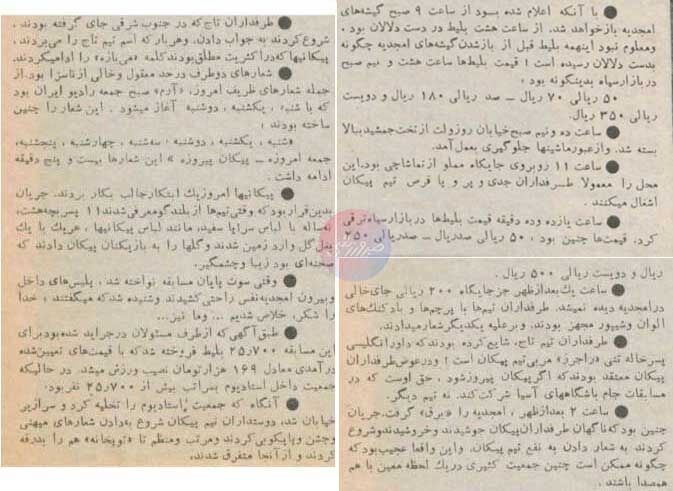 ● با آنکه اعلام شده بسود از ساعت ۹ صبح گیشه‌های
امجدیه بازخواهد شد. از ساعت هشت بلیط در دست دلالان بود.
ومعلوم نبود اینهمه بلیط قبل از بازشدن گیشه‌های امجدیه چگونه
بدست دلالان رسیده است؛ قیمت بلیط‌ها ساعت هشت و نیم صبح
دربازارسیاه بدینگونه بود:
۵۰ ریالی ۷۰ ریال ــ صد ریالی ۱۸۰ ریال و دویست
ریالی ۳۵۰ ریال.
● ساعت ده ونیم صبح خیابان روزولت ازتخت جمشیدببالا
بسته شد. وازعبورماشینها جلوگیری بعمل آمد.
● ساعت ۱۱ روبروی جایگاه مملو از تماشاچی بود. این
محل را معمولا طرفداران جدی و پر و پا قرص تیم پیکان
اشغال میکنند.
● ساعت یازده وده دقیقه قیمت بلیط‌ها دربازارسیاه ترقی
کرد. قیمت‌ها چنین بود، ۵۰ ریالی صدریال ــ صدریالی ۲۵۰
ریال و دویست ریالی ۵۰۰ ریال.
● ساعت یك بعدازظهر جزجایگاه ۲۰۰ ریالی جای‌خالی
درامجدیه دیده نمیشد. طرفداران تیم‌ها با پرچم‌ها و بادکنك‌های
الوان وشیپور مجهز بودند. وبرعلیه یکدیگرشعارمیدادند.
● طرفداران تیم تاج، شایع کرده بودندکه داورانگلیسی
پسرخاله تنی «راجرز» مربی‌تیم پیکان است؛ ودرعوض‌طرفداران
پیکان معتقد بودندکه اگرپیکان پیروزشود، حق اوست که در
مسابقات جام باشگاههای آسیا شرکت کند. نه تیم دیگر.
● ساعت ۲ بعدازظهر، امجدیه را «برق» گرفت. جریان
چنین بودکه ناگهان طرفداران‌پیکان جوشیدند وخروشیدندوشروع
کردند به شعار دادن به نفع تیم پیکان. واین واقعا عجیب‌بودکه
چگونه ممکن است چنین جمعیت کثیری دریك لحظه معین با هم
همصدا باشند.
● طرفداران تاج‌که در جنوب شرقی جای گرفته بودند،
شروع‌کردند به جواب دادن. وهربارکه اسم تیم تاج را می‌بردند،
پیکانیهاکه‌دراکثریت مطلق‌بودندکلمه «می‌بازه» را اداهمیکردند.
● شعارهای دوطرف درحد معقول وخالی ازناسزا بود. از
جمله شعارهای ظریف امروز، «آرم» صبح جمعه رادیو ایران بود
که با شنبه، یکشنبه، دوشنبه آغاز میشود. این شعار را چنین
ساخته بودند:
«شنبه، یکشنبه، دوشنبه: سه‌شنبه، چهارشنبه، پنجشنبه،
جمعه امروزه ــ پیکان پیروزه» این شعارها بیست و پنج دقیقه
ادامه داشت.
● پیکانیها امروزیك ابتکارجالب بکار بردند. جریان
بدین‌قراربودکه وقتی‌تیم‌ها ازبلندگومعرفی‌شدند ۱۱ پسربچه‌هشت،
نه‌ساله با لباس سراپا سفید، مانند لباس پیکانیها، هریك با یك
بغل‌گل وارد زمین شدند وگلها را به بازیکنان پیکان دادند که
صحنه‌ای بود زیبا وچشمگیر.
● وقتی سوت پایان مسابقه نواخته شد، پلیس‌های داخل
وبیرون امجدیه‌نفس راحتی‌کشیدند. وشنیده شدکه میگفتند، خدا
را شکر، خلاص شدیم... وما نیز...
● طبق‌آگهی‌که ازطرف مسئولان درجراید شده‌بودبرای
این مسابقه ۲۵٫۷۰۰ بلیط فروخته شدکه با قیمت‌های تعیین‌شده
درآمدی معادل ۱۶۹ هزارتومان نصیب ورزش میشد. در حالیکه
جمعیت داخل استادیوم بمراتب بیش از ۲۵٫۷۰۰ نفربود.
● آنگاه که جمعیت استادیوم را تخلیه کرد و سرازیر
خیابان شد، دوستداران تیم پیکان شروع به‌دادن شعارهای میهنی
وجشن وپایکوبی‌کردند ومرتب ومنظم تا «توپخانه» هم را بدرقه
کردند و از آنجا متفرق شدند.